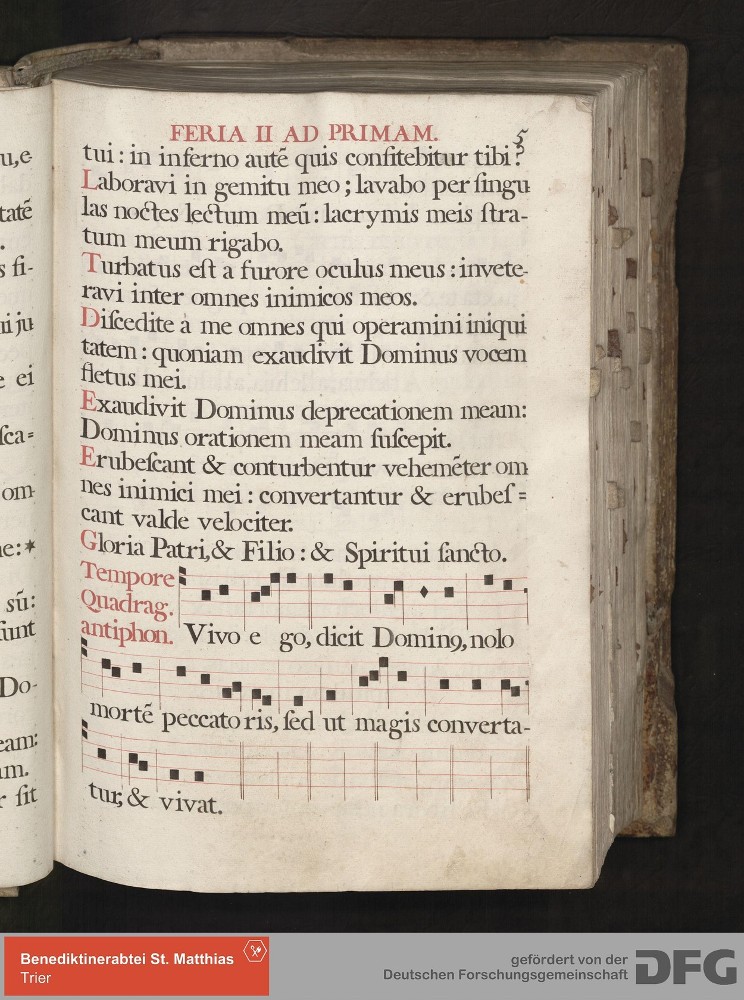 u,e
tatē
.
s ſi-
ni ju
e ei
ſca=
om
ne:*
sū:
ſunt
Do-
eam:
am.
r ſit
FERIA II AD PRIMAM. 5
tui : in inferno autē quis confitebitur tibi ?
Laboravi in gemitu meo ; lavabo per ſingu
las noctes lectum meū : lacrymis meis ſtra-
tum meum rigabo.
Turbatus eſt a furore oculus meus : invete-
ravi inter omnes inimicos meos.
Diſcedite à me omnes qui operamini iniqui
tatem : quoniam exaudivit Dominus vocem
fletus mei.
Exaudivit Dominus deprecationem meam:
Dominus orationem meam ſuſcepit.
Erubeſcant & conturbentur vehemēter om
nes inimici mei : convertantur & erubeſ=
cant valde velociter.
Gloria Patri, & Filio : & Spiritui ſancto.
Tempore
Quadrag.
antiphon. Vivo e go, dicit Dominꝯ, nolo
mortē peccato ris, ſed ut magis converta-
tur, & vivat.
Benediktinerabtei St. Matthias
Trier
gefördert von der
Deutschen Forschungsgemeinschaft DFG